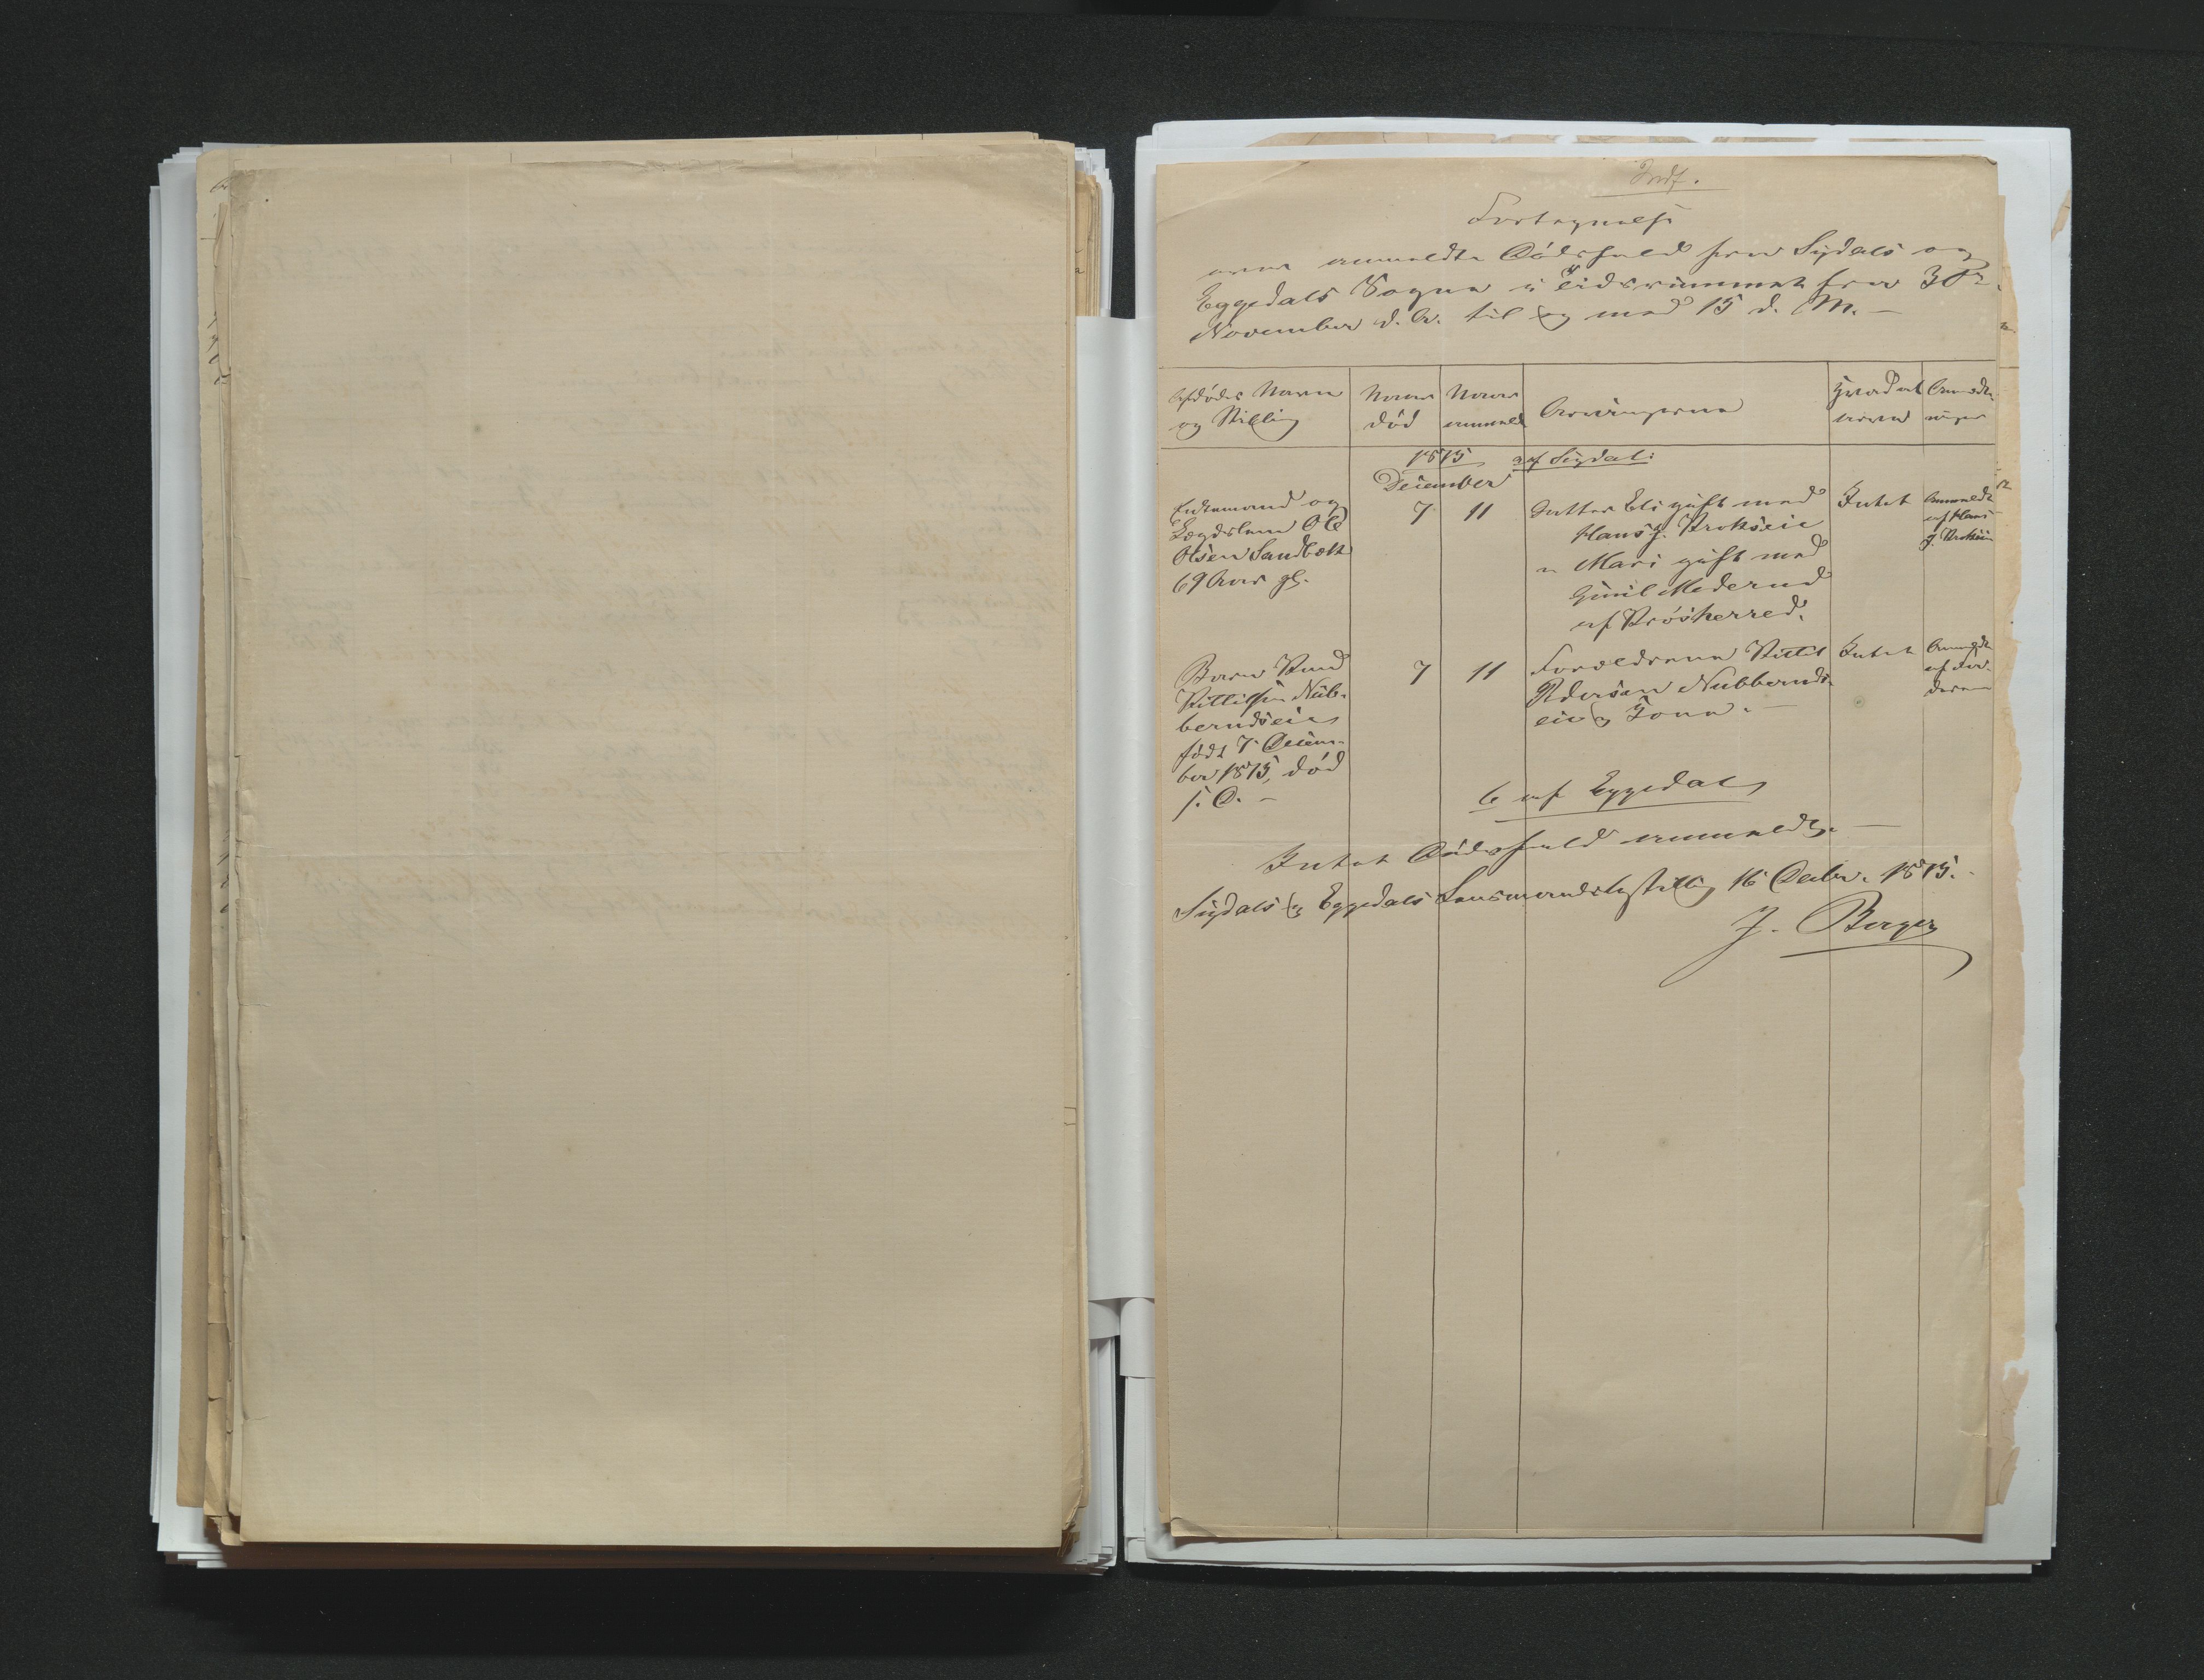 Indf.
Fortegnelse
over anmeldte Dødsfald fra Sigdals og
Eggedals Sogne i Tidsrummet fra 30te
November d. A. til og med 15 d. M. —
Afdødes Navn
og Stilling
Naar
død
Naar
anmeldt
Arvingerne
Hvad at
arve
Anmærk-
ninger
1875 a af Sigdal:
December
Enkemand og
Lægdslem Ole
Olsen Sandbæk
69 Aar gl.
7
11
Datter Eli gift med
Hans J. Krokseie
" Mari gift med
Moderud
af Krødsherred.
Intet
Anmeldt
af Hans
J. Krokseie
Barn Knud
Kittilsen Nub-
berudseie
født 7 Decem-
ber 1875, død
s. D. —
7
11
Forældrene Kittil
Pedersen Nubberuds-
eie og Tone. —
Intet
Anmeldt
af For-
ældrene
b af Eggedal
Intet Dødsfald anmeldt. —
Sigdals og Eggedals Lensmandsbestilling 16 Decbr. 1875.
J. Berger